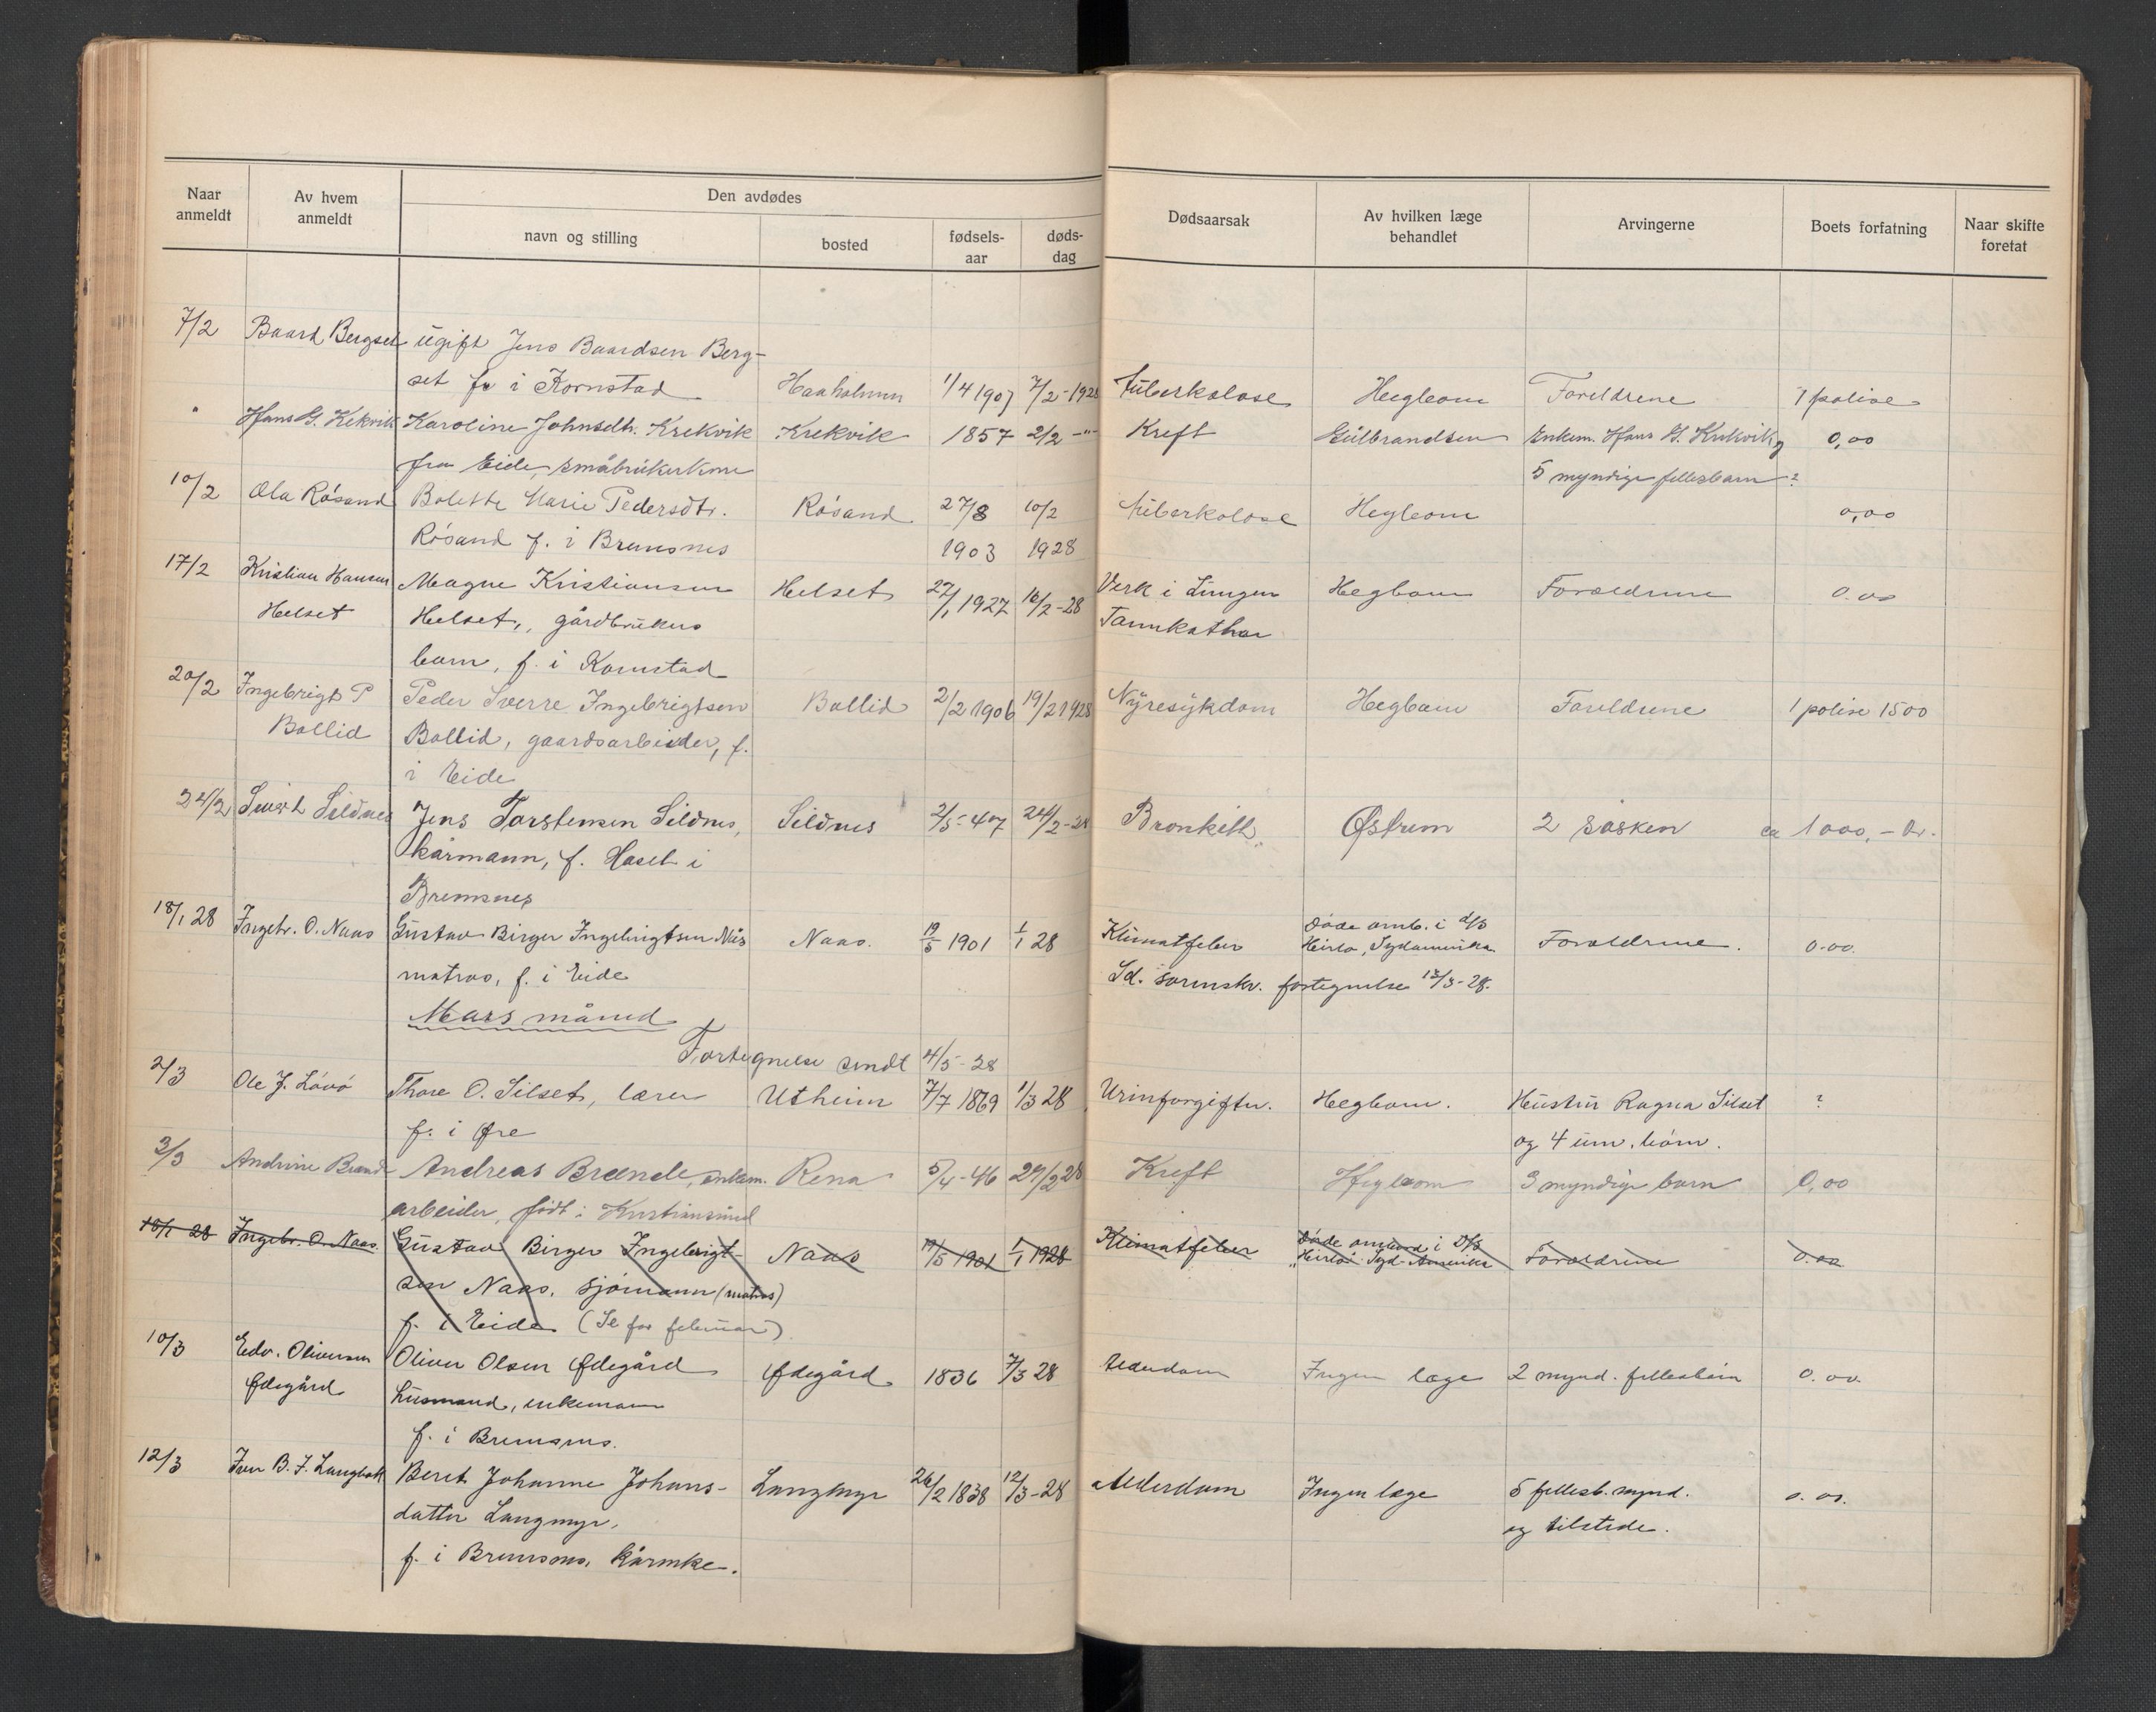 Naar anmeldt | Av hvem anmeldt | Den avdødes | Dødsaarsak | Av hvilken læge behandlet | Arvingerne | Boets forfatning | Naar skifte foretat
navn og stilling | bosted | fødsels-aar | døds-dag
7/2 Baard Bergset ugift Jens Baardsen Berg-
set fr i Kornstad Haaholmen 1/4 1907 7/2-1928 tuberkolose Hegbom Foreldrene 1 polise
" Hans G. Kekvik Karoline Johnsdtr. Krekvik Krekvik 1857 2/2 -"- Kreft Gulbrandsen Enkem. Hans G. Krekvik og 0,00
fra Eide, småbrukerkone 5 myndige fellesbarn ?
10/2 Ola Røsand Bolette Marie Pedersdtr. Røsand 27/8 10/2 tuberkolose Hegbom 0,00
Røsand f. i Bremsnes 1903 1928
17/2 Kristian Hansen Magne Kristiansen Helset 27/1 1927 16/2-28 Verk i Lungen Hegbom Foreldrene 0.00
Helset Helset, gårdbrukers Tannkathar
barn, f. i Kornstad
20/2 Ingebrigt P Peder Sverre Ingebrigtsen Bollid 2/2 1906 19/2 1928 Nyresykdom Hegbom Foreldrene 1 polise 1500
Bollid Bollid, gaardsarbeider, f.
i Eide
24/2 Sivert Sildnes Jens Torstensen Sildnes, Sildnes 2/5-47 24/2-28 Bronkitt Østrem 2 søsken ca 1000,- kr.
kårmann, f. Haset i
Bremsnes
18/1 28 Ingebr. O. Naas Gustav Birger Ingebrigtsen Nås Naas. 19/5 1901 1/1 28 Klimatfeber Døde omb. i d/s Foreldrene. 0.00.
Heirlo, Sydamerika.
matros, f. i Eide Sd. sorenskr. fortegnelse 13/3-28.
Mars måned
Fortegnelse sendt 4/5-28
2/3 Ole J. Løvø Thore O. Silset, lærer Utheim 7/7 1869 1/3 28 Urinforgiftn. Hegbom. Hustru Ragna Silset ?
f. i Øre og 4 um. børn.
3/3 Andrine Brende Andreas Brende, enkem. Rena 5/4-46 27/2 28 Kreft Hegbom 3 myndige barn 0,00
arbeider, født i Kristiansund
18/1 28 Ingebr. O. Naas. Gustav Birger Ingebrigt- Naas 19/5 1901 1/1 1928 Klimatfeber Døde ombord i D/S Foreldrene 0.00
"Heirlo" Syd-Amerika
sen Naas, sjømann (matros)
f. i Eide (Se for februar).
10/3 Edv. Oliversen Oliver Olsen Ødegård Ødegård 1836 7/3 28 Alderdom Ingen læge 2 mynd. fellesbarn 0.00.
Ødegård husmand, enkemann
f. i Bremsnes.
12/3 Iver B. J. Beret Johanne Johans- Langmyr 26/2 1838 12/3-28 Alderdom Ingen læge 5 fellesb. mynd. 0.00.
datter Langmyr, og tilstede.
f. i Bremsnes, kårenke.